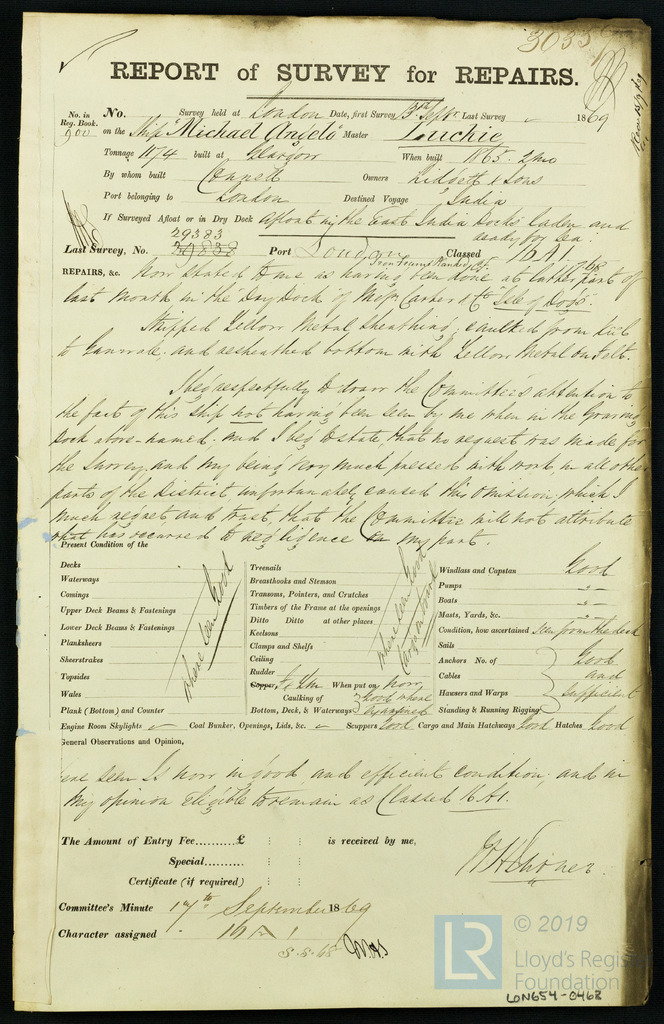 3033
REPORT of SURVEY for REPAIRS.
No. in Reg. Book. 900
No. Survey held at London Date, first Survey 13th Septr. Last Survey 1869
on the Ship "Michael Angelo" Master Luckie
Tonnage 1174 built at Glasgow When built 1865. 2mo
By whom built Connell Owners Liddell & Sons
Port belonging to London Destined Voyage India
If Surveyed Afloat or in Dry Dock Afloat in the East India Docks laden and
ready for Sea.
29383
Last Survey, No. 30838 Port London Classed 16A1.
Iron Frames Planked
REPAIRS, &c. Now stated to me as having been done at latter part of
last Month in the Dry Dock of Messrs Carter & Co "Isle of Dogs".
Stripped Yellow Metal Sheathing; caulked from Keel
to Gunwale; and resheathed bottom with Yellow Metal on Felt.
I beg respectfully to draw the Committee's attention to
the fact of this Ship not having been seen by me when in the Graving
Dock above-named; and I beg to state, that no request was made for
the Survey, and my being very much pressed with work, in all other
parts of the District, unfortunately caused this omission, which I
much regret, and trust, that the Committee will not attribute
what has occurred to negligence on my part.
Present Condition of the
Decks
Waterways
Comings
Upper Deck Beams & Fastenings
Lower Deck Beams & Fastenings
Planksheers
Sheerstrakes
Topsides
Wales
Plank (Bottom) and Counter
where seen Good
Treenails
Breasthooks and Stemson
Transoms, Pointers, and Crutches
Timbers of the Frame at the openings
Ditto Ditto at other places
Keelsons
Clamps and Shelfs
Ceiling
Rudder
Copper When put on Now
Caulking of
Bottom, Deck, & Waterways Good where Examined
where seen Good
Cargo on board
Windlass and Capstan Good
Pumps "
Boats "
Masts, Yards, &c. "
Condition, how ascertained seen from the deck
Sails
Anchors No. of
Cables
Hawsers and Warps
Standing & Running Rigging
Good and Sufficient
Engine Room Skylights Coal Bunker, Openings, Lids, &c. Scuppers Good Cargo and Main Hatchways Good Hatches Good
General Observations and Opinion,
seen Is now in good and efficient condition, and in
my opinion eligible to remain as Classed 16A1.
The Amount of Entry Fee.........£ : : is received by me,
Special......... : :
Certificate (if required) : :
Committee's Minute 17th September 1869
Character assigned 16A1
© 2019
LR
Lloyd's Register
Foundation
LON654-0468